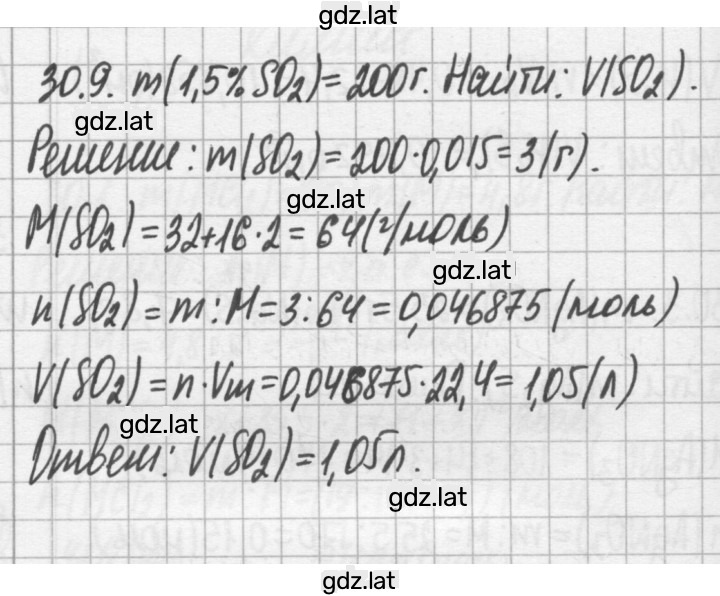 gdz.lat
30.9. m(1,5% SO₂)=200г. Найти: V(SO₂).
gdz.lat
Решение: m(SO₂)=200·0,015=3(г).
gdz.lat
M(SO₂)=32+16·2=64(г/моль)
gdz.lat
n(SO₂)=m:M=3:64=0,046875(моль)
V(SO₂)=n·Vm=0,046875·22,4=1,05(л)
gdz.lat
Ответ: V(SO₂)=1,05л.
gdz.lat
gdz.lat